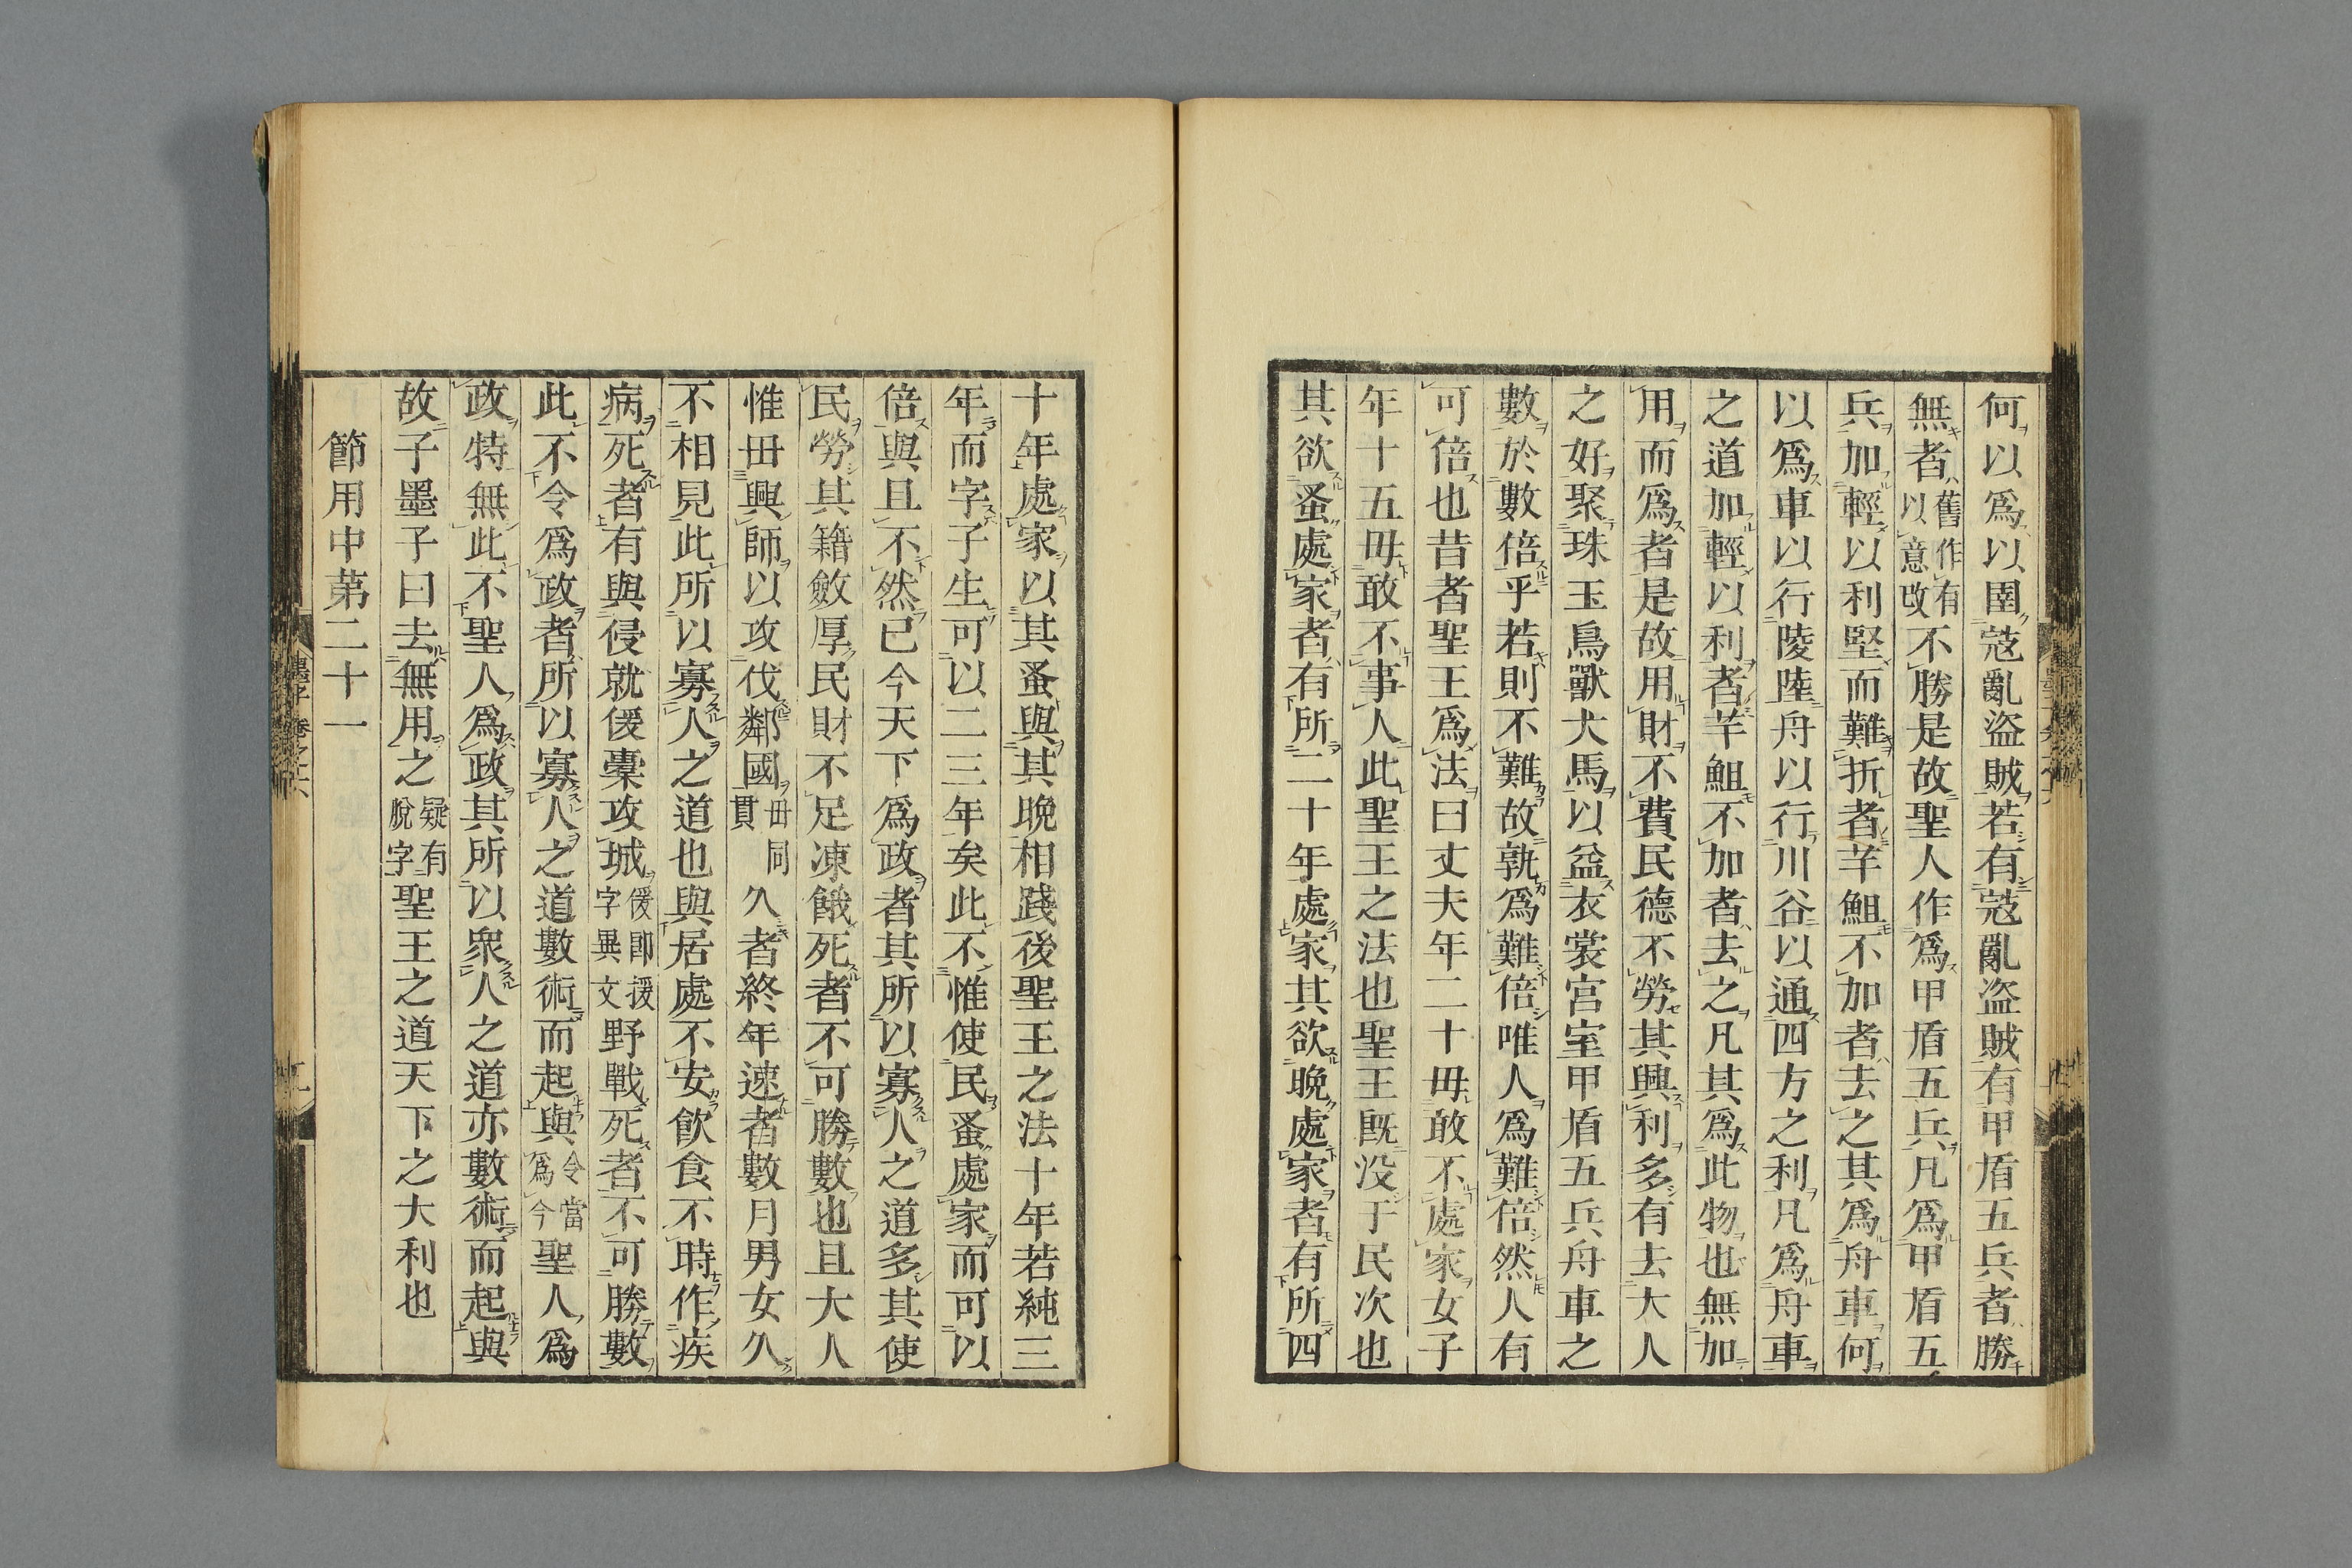 何以爲以圉寇亂盜賊若有寇亂盜賊有甲盾五兵者勝
無者舊作有以意改不勝是故聖人作爲甲盾五兵凡爲甲盾五
兵加輕以利堅而難折者芊䱉不加者去之其爲舟車何
以爲車以行陵陸舟以行川谷以通四方之利凡爲舟車
之道加輕以利者芊䱉不加者去之凡其爲此物也無加
用而爲者是故用財不費民德不勞其興利多有去大人
之好聚珠玉鳥獸犬馬以益衣裳宮室甲盾五兵舟車之
數於數倍乎若則不難故孰爲難倍唯人爲難倍然人有
可倍也昔者聖王爲法曰丈夫年二十毋敢不處家女子
年十五毋敢不事人此聖王之法也聖王旣没于民次也
其欲蚤處家者有所二十年處家其欲晩處家者有所四
十年處家以其蚤與其晩相踐後聖王之法十年若純三
年而字子生可以二三年矣此不惟使民蚤處家而可以
倍與且不然已今天下爲政者其所以寡人之道多其使
民勞其籍斂厚民財不足凍餓死者不可勝數也且大人
惟毌興師以攻伐鄰國毌同貫久者終年速者數月男女久
不相見此所以寡人之道也與居處不安飮食不時作疾
病死者有與侵就偄橐攻城偄卽援字異文野戰死者不可勝數
此不令爲政者所以寡人之道數術而起與令當爲今聖人爲
政特無此不聖人爲政其所以衆人之道亦數術而起與
故子墨子曰去無用之疑有脫字聖王之道天下之大利也
節用中第二十一